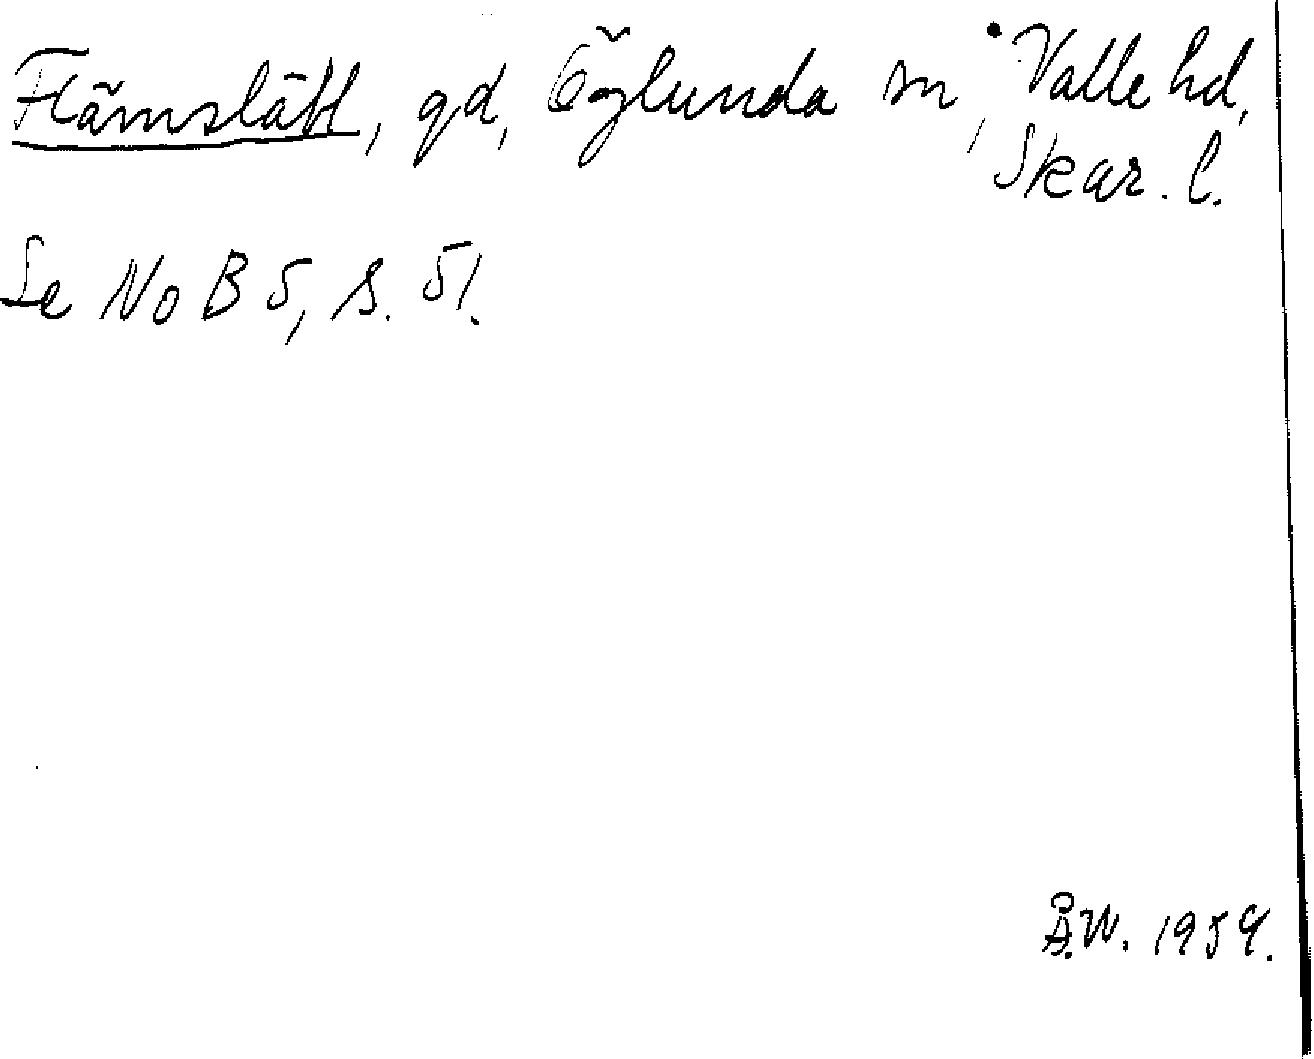 Flämslätt, gd, Öglunda sn, Valle hd,
Skar. l.
Se NoB 5, s. 51.
Å.W. 1959.